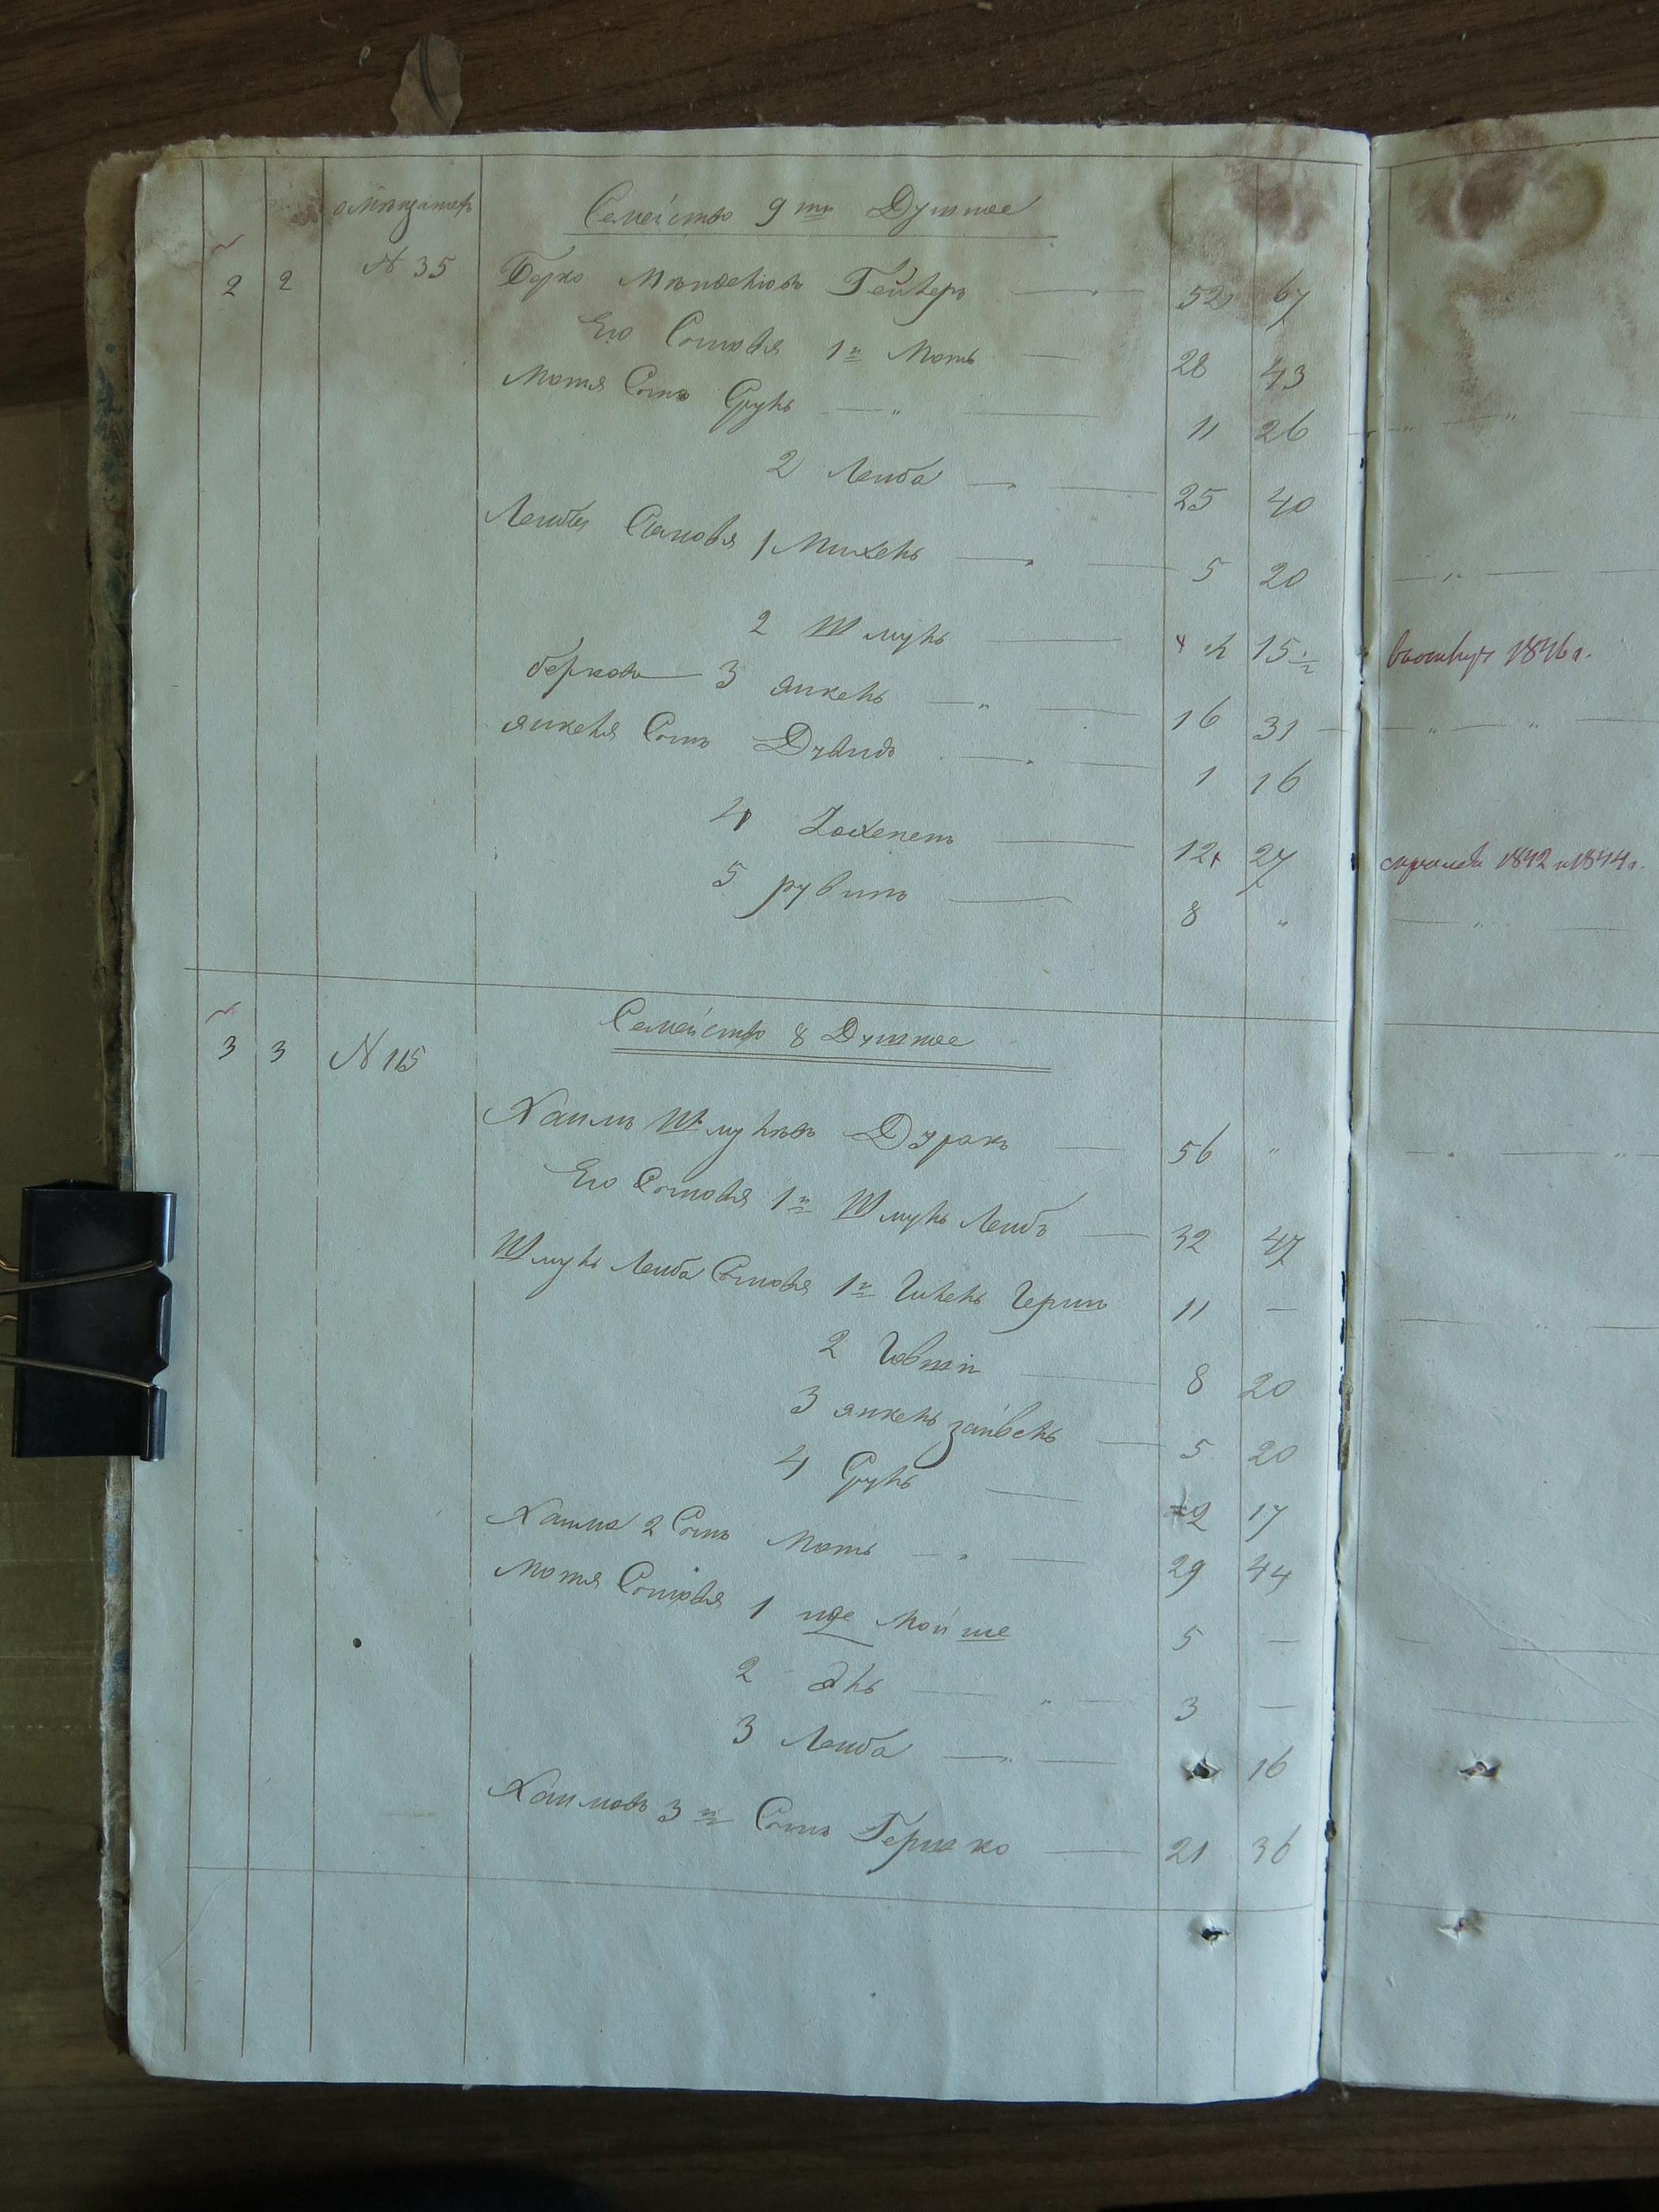 Семейство 9ти Душное
2 2 N 35 Берко Мошковъ Гейлеръ 52 67
Его Сыновья 1й Моть 28 43
Мотя Сынъ Сруль 11 26
2 Лейба 25 40
Лейбы Сыновья 1 Михель 5 20
2 Шмуль 15 1/2 1846 г.
Берковъ 3 Янкель 16 31
Янкеля Сынъ Дувидъ 1 16
4 12 27 1842 и 1844 г.
5 Рувинъ 8 "
Семейство 8 Душное
3 3 N 115
Хаимъ Шмулевъ Дуракъ 56 "
Его Сыновья 1й Шмуль Лейбъ 32 47
Шмуль Лейба Сыновья 1й 11 —
2 Говшій 8 20
3 Янкель Зайвель 5 20
4 Сруль 2 17
Хаима 2 Сынъ Моть 29 44
Мотя Сыновья 1 Иде Мойше 5 —
2 Эль 3 —
3 Лейба 16
Хаимовъ 3й Сынъ Гершко 21 36